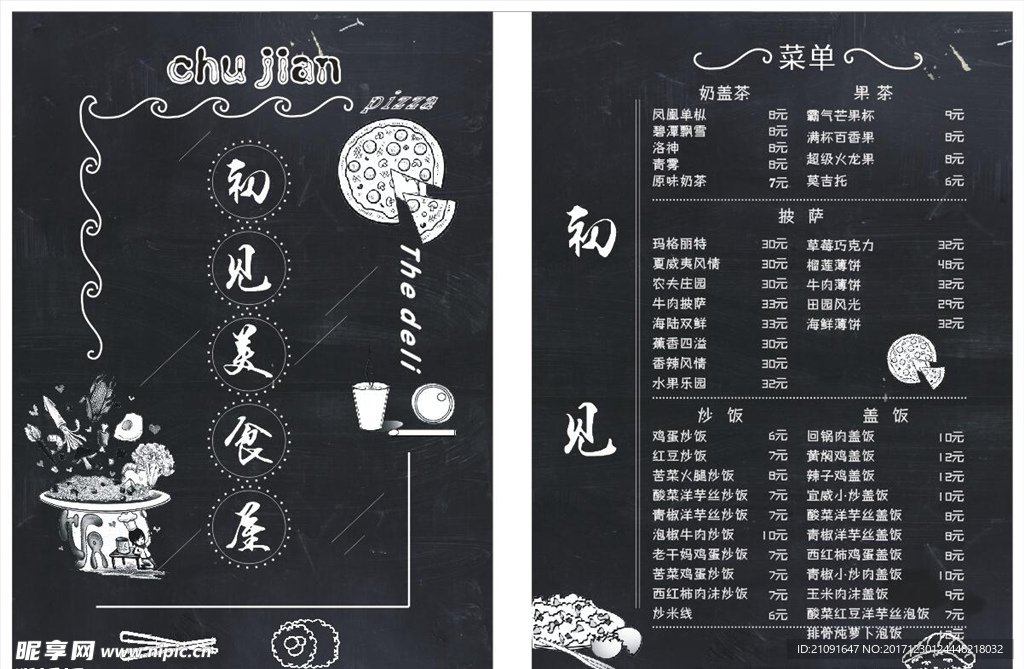 chu jian
pizza
初
见
美
食
屋
The deli
昵享网 www.nipic.cn
菜单
初
见
奶盖茶
凤凰单枞 8元
碧潭飘雪 8元
洛神 8元
青雾 8元
原味奶茶 7元
果茶
霸气芒果杯 9元
满杯百香果 8元
超级火龙果 8元
莫吉托 6元
披萨
玛格丽特 30元
夏威夷风情 30元
农夫庄园 30元
牛肉披萨 33元
海陆双鲜 33元
蕉香四溢 30元
香辣风情 30元
水果乐园 32元
草莓巧克力 32元
榴莲薄饼 48元
牛肉薄饼 32元
田园风光 29元
海鲜薄饼 32元
炒饭
鸡蛋炒饭 6元
红豆炒饭 7元
苦菜火腿炒饭 8元
酸菜洋芋丝炒饭 7元
青椒洋芋丝炒饭 7元
泡椒牛肉炒饭 10元
老干妈鸡蛋炒饭 7元
苦菜鸡蛋炒饭 7元
西红柿肉沫炒饭 7元
炒米线 6元
盖饭
回锅肉盖饭 10元
黄焖鸡盖饭 12元
辣子鸡盖饭 12元
宣威小炒盖饭 10元
酸菜洋芋丝盖饭 8元
青椒洋芋盖饭 8元
西红柿鸡蛋盖饭 8元
青椒小炒肉盖饭 10元
玉米肉沫盖饭 9元
酸菜红豆洋芋丝泡饭 7元
排骨炖萝卜泡饭 12元
ID:21091647 NO:20171230124448218032